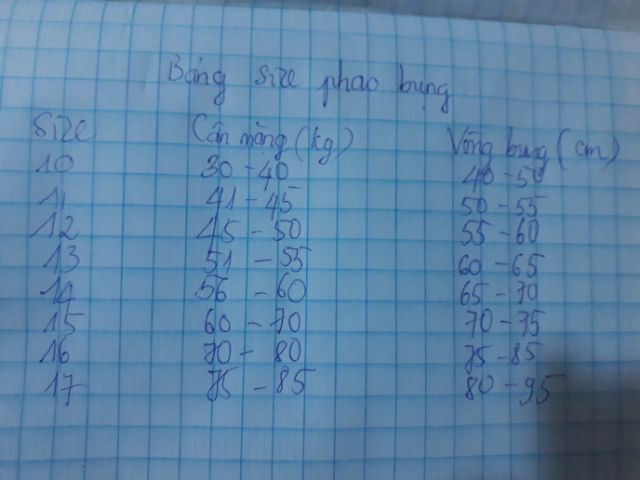 Bảng size phao bụng
Size Cân nặng (kg) Vòng bụng (cm)
10 30 - 40 40 - 50
11 41 - 45 50 - 55
12 45 - 50 55 - 60
13 51 - 55 60 - 65
14 56 - 60 65 - 70
15 60 - 70 70 - 75
16 70 - 80 75 - 85
17 75 - 85 80 - 95